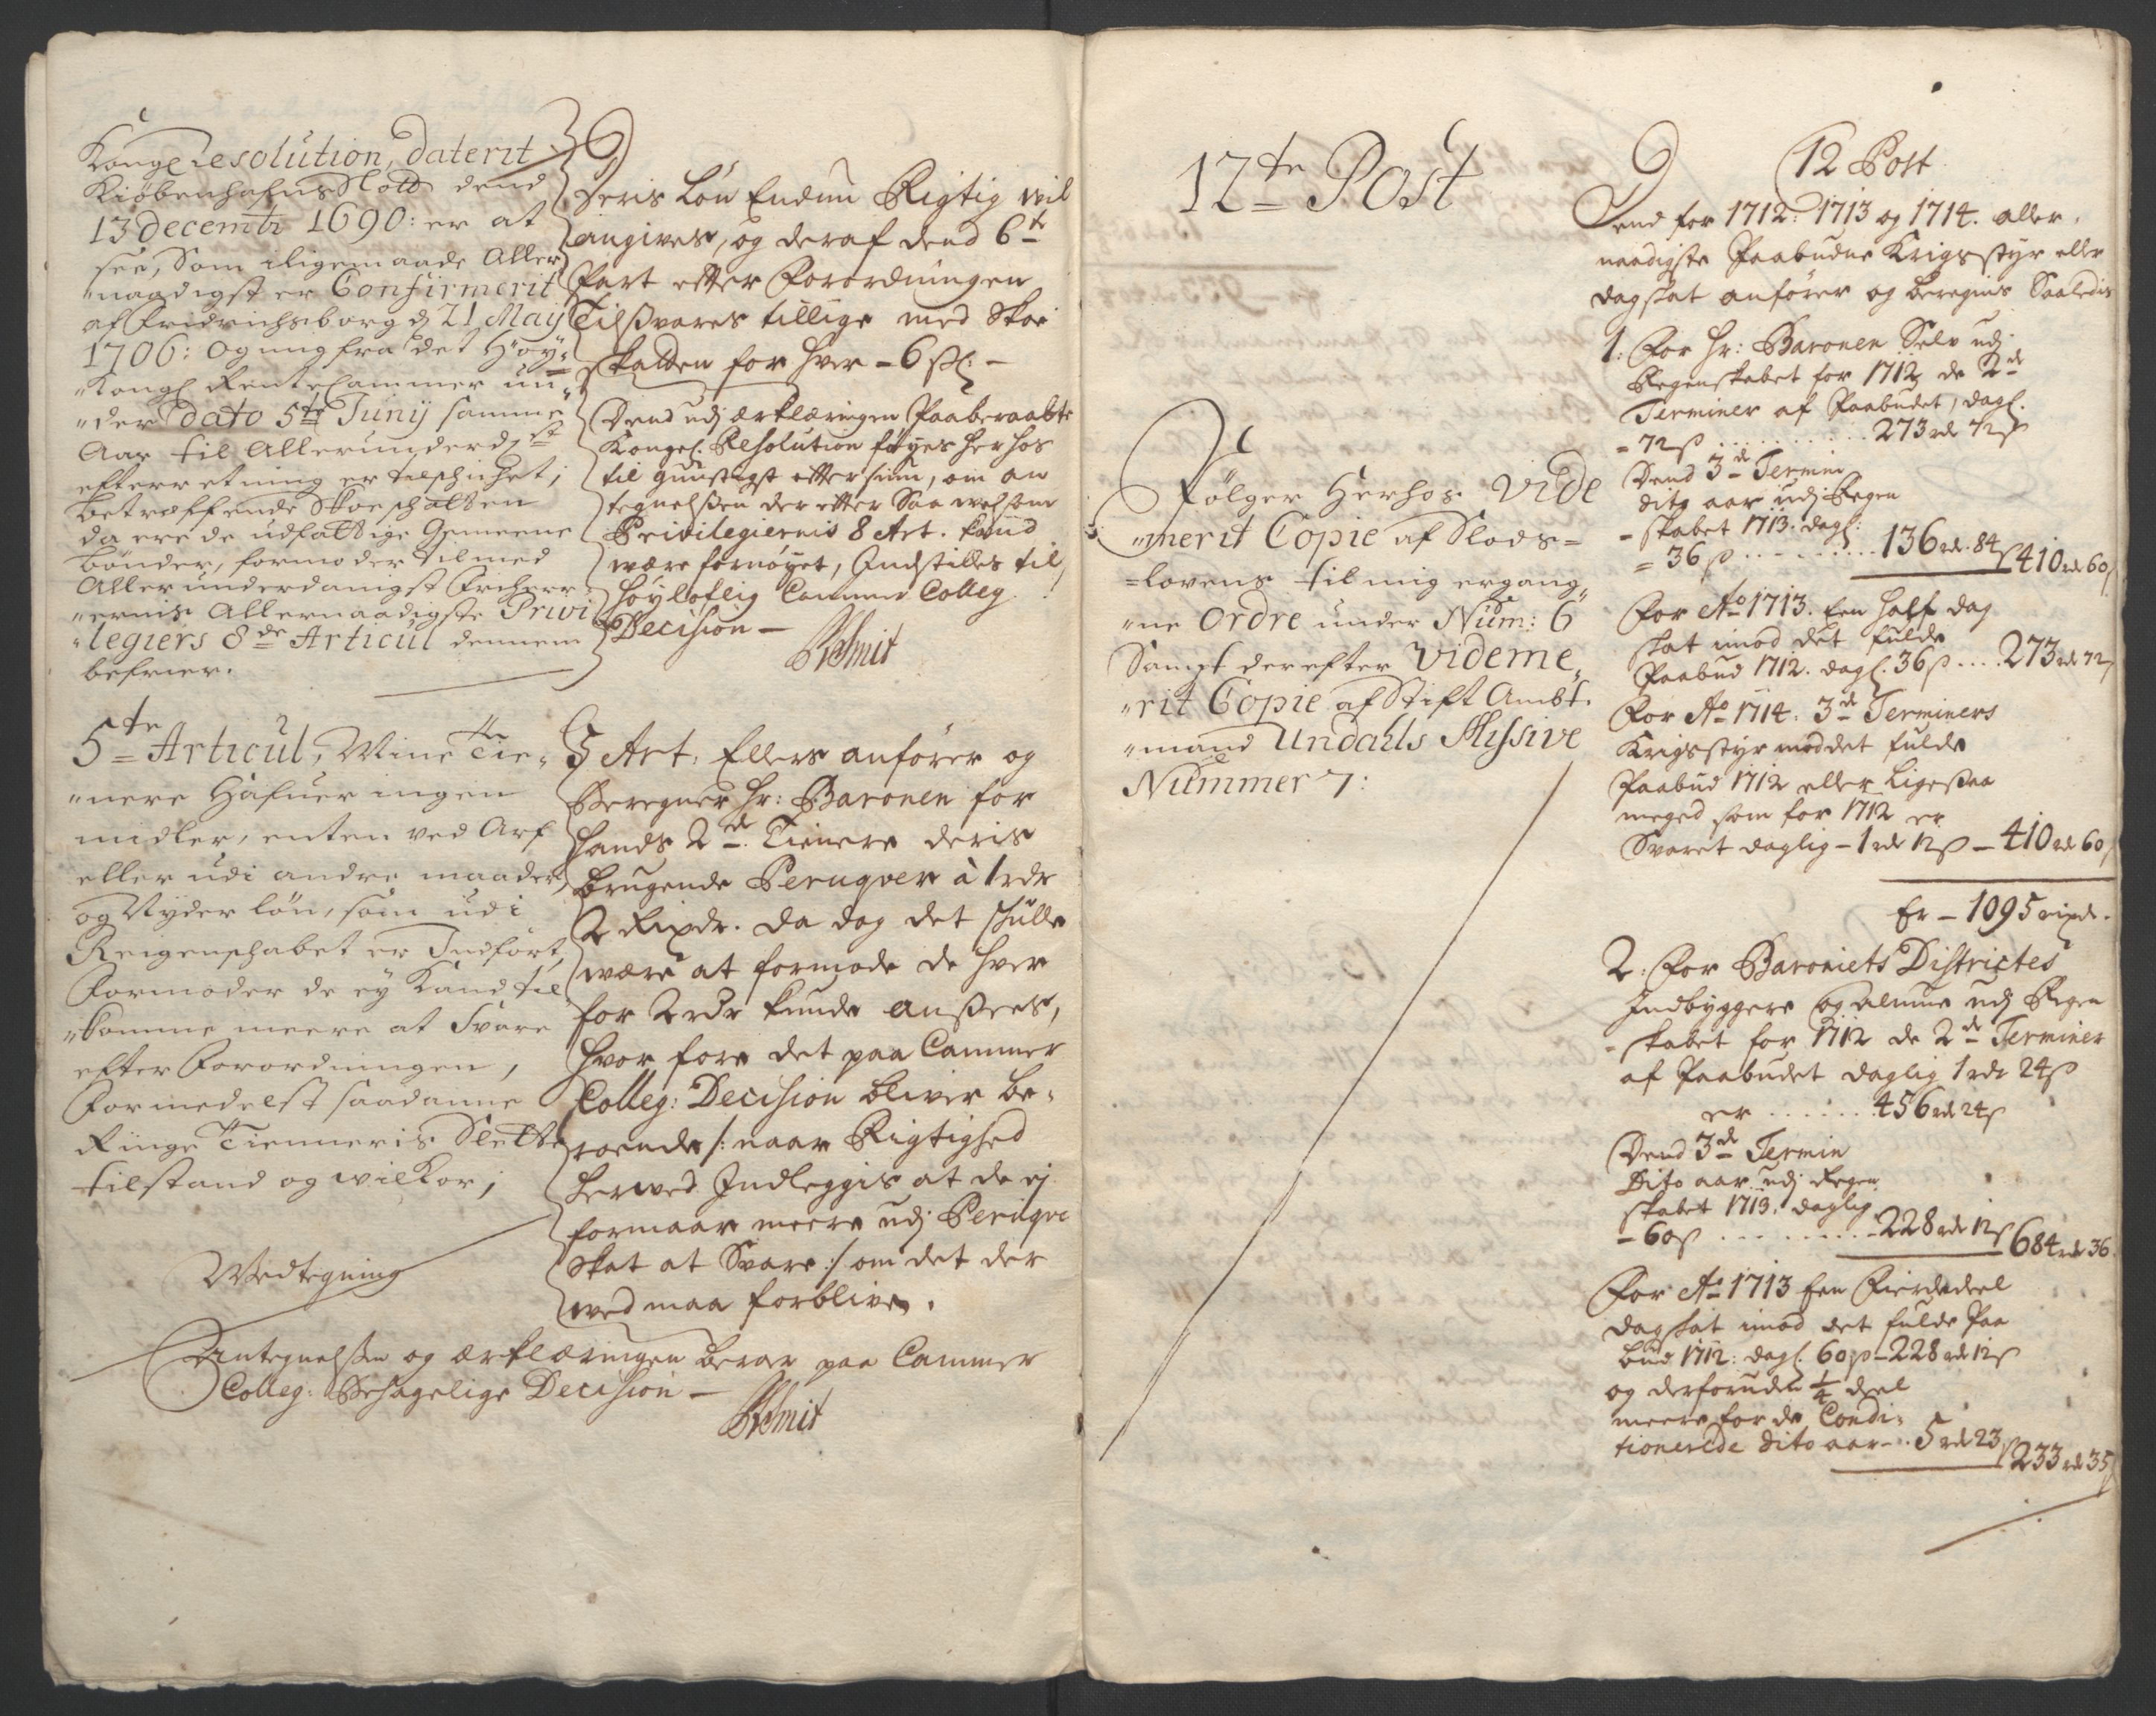 Kongl Resolution, daterit
Kiøbenhafns Slott dend
13 decembr 1690: er at
see, Som iligemaade Aller
"naadigst er Confirmerit
af Fridrichsborg d 21 May
1706: Og mig fra det Høy=
"Kongl RenteCammer un=
"der Dato 5te Junij samme
Aar til Allerunderd.st
efterretning er tilschichet,
betræffende Skoeschatten
da ere de udfattige Gemeene
bønder, formoder tilmed
Allerunderdanigst Frcherr=
"ernis Allernaadigste Privi
"legiers 8de Articul dennem
befrier.
5te Articul, Mine Tie=
"nere Hafuer ingen
midler, enten ved Arf
eller udi andre maader,
og Nyder løn, som udi
Reigenschabet er Indført,
Formoder de ey Kand til
"komme meere at Svare
efter Forordningen,
Formedelst saadanne
Ringe Tienneris Slette
tilstand og wilkor;
Wedtegning
Deris Løn Endnu Rigtig wil
angives, og deraf dend 6te
Part efter Forordningen
Tilsvares tillige med Skoe
skatten for hver - 6 sk: -
Dend udj ærklæringen Paaberaabte
Kongel. Resolution føyes herhos
til gunstigst eftersiun, om an
tegnelsen der efter Saa wel som
Privilegiernis 8 Art. kand
være fornøyet, Indstilles til
Høyloflig Cammer Colleg.
Decision -
Schmit
5 Art. Ellers anfører og
Beregner Hr: Baronen for
hands 2de Tienere deris
brugende Peruqver à 1 rdr
2 Rixdr. da dog det skulle
være at formode de hver
for 2 rdr kunde ansees,
hvor fore det paa Cammer
Colleg: Decision bliver be=
roende /: naar Rigtighed
herved Indleggis at de ej
formaar meere udj Peruqve
Skat at Svare :/ om det der
ved maa forblive.
Antegnelsen og ærklæringen beroer paa Cammer
Colleg: Behagelige Decision -
Schmit
12te Post
Følger Herhos Vide
"merit Copie af Slods=
=lovens til mig ergang=
"ne Ordre under Num: 6
Sampt derefter Videme=
"rit Copie af Stift Ambt
"mand Undahls Missive
Nummer 7:
12 Post
Dend for 1712: 1713 og 1714. aller=
naadigste Paabudne Krigsstyr eller
dagskat anfører og beregnis Saaledis
1: For Hr: Baronen Selv udj
Regenskabet for 1712 de 2de
Terminer af Paabudet, dagl.
= 72 s .......... 273 rdr 72 s
Dend 3de Termin
dito aar udj Regen
- skabet 1713. dagl:
= 36 s ........ 136 rdr. 84 s 410 rdr 60 s
For Ao 1713. Een half dag
skat imod det fulde
Paabud 1712. dagl. 36 s .... 273 rdr 72 s
For Ao 1714. 3de Terminers
Krigsstyr mod det fulde
Paabud 1712 eller ligesaa
meged som for 1712 er
Svaret daglig - 1 rdr 12 s - 410 rdr 60 s
Er - 1095 rixdr.
2: For Baroniets Districtes
Indbyggere og Almue udj Regen
- skabet for 1712 de 2de Terminer
af Paabudet daglig 1 rdr 24 s
er ...... 456 rdr 24 s
Dend 3de Termin
Dito aar udj Regen
skabet 1713. daglig
- 60 s ........ - 228 rdr 12 s 684 rdr 36
For Ao 1713 Een Fierdedeel
dagskat imod det fulde Paa
bud 1712: dagl. 60 s - 228 rdr 12 s
og derforuden 1/4 deel
meere for de Condi=
tionerede dito aar - .. 5 rdr 23 s 233 rdr 35 s